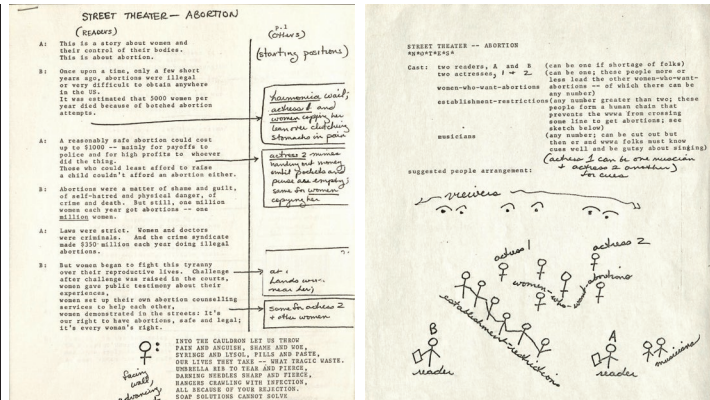 STREET THEATER — ABORTION
(READERS)
p.1
(others)
(starting positions)
A: This is a story about women and
their control of their bodies.
This is about abortion.
B: Once upon a time, only a few short
years ago, abortions were illegal
or very difficult to obtain anywhere
in the US.
It was estimated that 5000 women per
year died because of botched abortion
attempts.
harmonica wail;
actress 1 and
women copying her
lean over clutching
stomachs in pain
A: A reasonably safe abortion could cost
up to $1000 -- mainly for payoffs to
police and for high profits to whoever
did the thing.
Those who could least afford to raise
a child couldn't afford an abortion either.
actress 2 mimes
handing out money
until pockets and
purse are empty;
same for women
copying her
B: Abortions were a matter of shame and guilt,
of self-hatred and physical danger, of
crime and death. But still, one million
women each year got abortions -- one
million women.
A: Laws were strict. Women and doctors
were criminals. And the crime syndicate
made $350 million each year doing illegal
abortions.
B: But women began to fight this tyranny
over their reproductive lives. Challenge
after challenge was raised in the courts,
women gave public testimony about their
experiences,
women set up their own abortion counselling
services to help each other,
women demonstrated in the streets: It's
our right to have abortions, safe and legal;
it's every woman's right.
hands
near her)
same for actress 2
+ other women
facing
wall,
advancing
INTO THE CAULDRON LET US THROW
PAIN AND ANGUISH, SHAME AND WOE,
SYRINGE AND LYSOL, PILLS AND PASTE,
OUR LIVES THEY TAKE -- WHAT TRAGIC WASTE.
UMBRELLA RIB TO TEAR AND PIERCE,
DARNING NEEDLES SHARP AND FIERCE,
HANGERS CRAWLING WITH INFECTION,
ALL BECAUSE OF YOUR REJECTION.
SOAP SOLUTIONS CANNOT SOLVE
STREET THEATER -- ABORTION
*N*O*T*E*S*
Cast: two readers, A and B (can be one if shortage of folks)
two actresses, 1 + 2 (can be one; these people more or
less lead the other women-who-want-
women-who-want-abortions abortions -- of which there can be
any number)
establishment-restrictions(any number greater than two; these
people form a human chain that
prevents the wwws from crossing
some line to get abortions; see
sketch below)
musicians (any number; can be cut out but
then or and wwws folks must know
cues well and be gutsy about singing)
(actress 1 can be one musician
+ actress 2 another)
for cues
suggested people arrangement:
viewers
actress 1
actress 2
women-who-want-abortions
establishment-restrictions
B
reader
A
reader
musicians